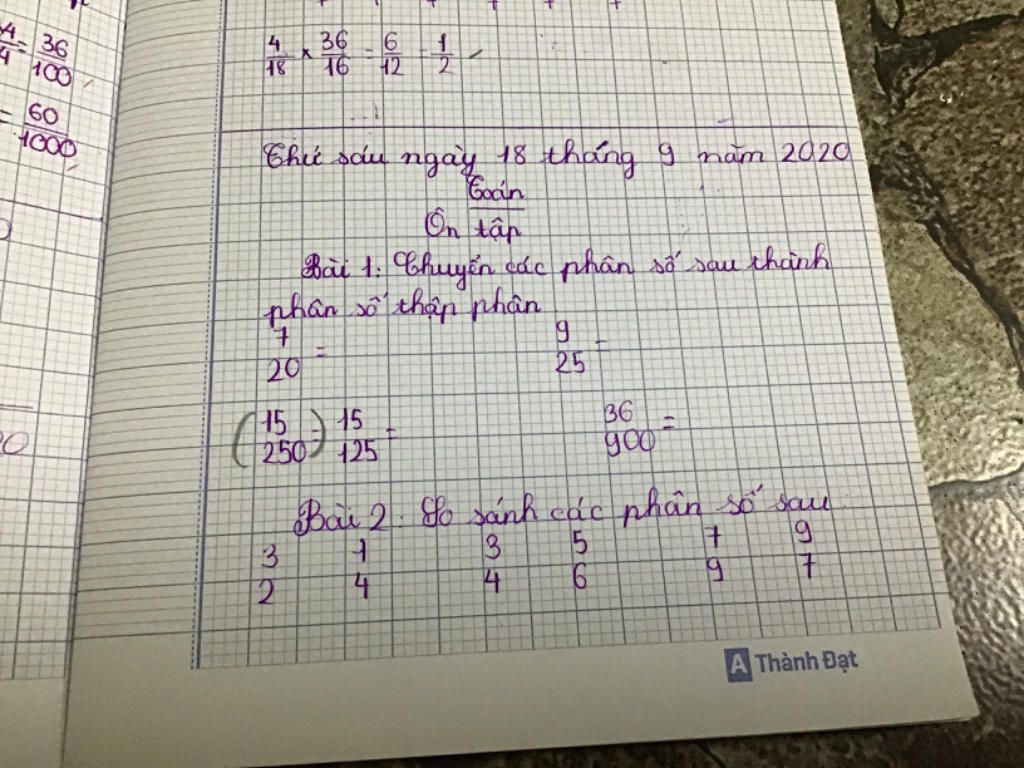 36/100
= 60/1000
4/18 × 36/16 = 6/12 = 1/2
Thứ sáu ngày 18 tháng 9 năm 2020
Toán
Ôn tập
Bài 1: Chuyển các phân số sau thành
phân số thập phân
7/20 = 9/25 =
(15/250 =) 15/125 = 36/900 =
Bài 2: So sánh các phân số sau
3/2 1/4 3/4 5/6 7/9 9/7
A Thành Đạt